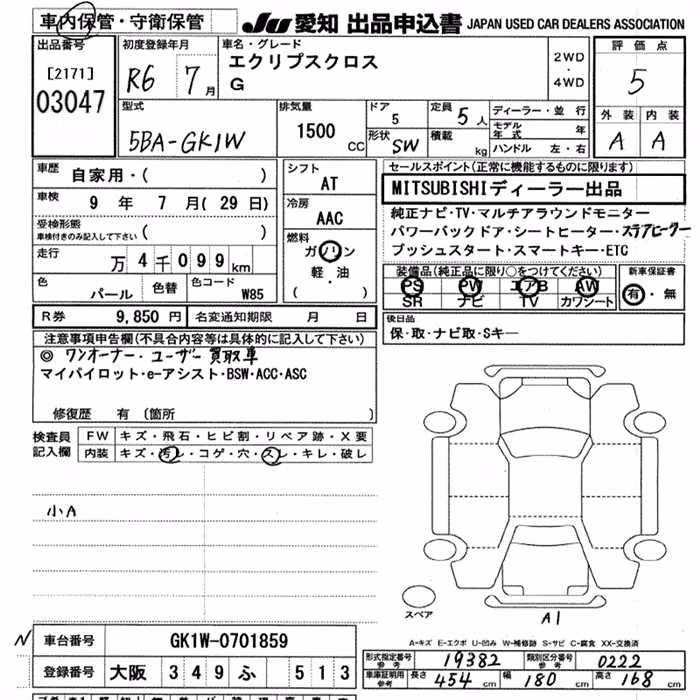 車内保管・守衛保管 JU 愛知 出品申込書 JAPAN USED CAR DEALERS ASSOCIATION
出品番号
[2171]
03047
初度登録年月
R6 7月
車名・グレード
エクリプスクロス
G
2WD
・
4WD
評価点
5
外装 内装
A A
型式
5BA-GK1W
排気量
1500 CC
ドア
5
形状
SW
定員
5人
積載
kg
ディーラー・並行
モデル年式 年
ハンドル 左・右
車歴 自家用・( )
車検 9 年 7 月(29 日)
受検形態
車検付きのみ記入して下さい ( )
走行 万 4 千 099 km
色 パール 色替 色コード W85
シフト
AT
冷房
AAC
燃料
ガソリン
軽・油
( )
セールスポイント(正常に機能するものに限ります)
MITSUBISHIディーラー出品
純正ナビ・TV・マルチアラウンドモニター
パワーバックドア・シートヒーター・ステアヒーター
プッシュスタート・スマートキー・ETC
装備品(純正品に限り○をつけてください)
PS PW エアB AW
SR ナビ TV カワシート
新車保証書
有・無
R券 9,850 円 名変通知期限 月 日
後日品
保・取・ナビ取・Sキー
注意事項申告欄(不具合内容等は具体的に記入して下さい)
◎ ワンオーナー・ユーザー買取車
マイパイロット・e-アシスト・BSW・ACC・ASC
修復歴 有 (箇所
検査員記入欄
FW キズ・飛石・ヒビ割・リペア跡・X要
内装 キズ・汚レ・コゲ・穴・スレ・キレ・破レ
小A
スペア
A1
A-キズ E-エクボ U-凹み W-補修跡 S-サビ C-腐食 XX-交換済
N
車台番号 GK1W-0701859
登録番号 大阪 349 ふ 513
形式指定番号 参考 19382 類別区分番号 参考 0222
車庫証明用 参考 長さ 454 cm 幅 180 cm 高さ 168 cm